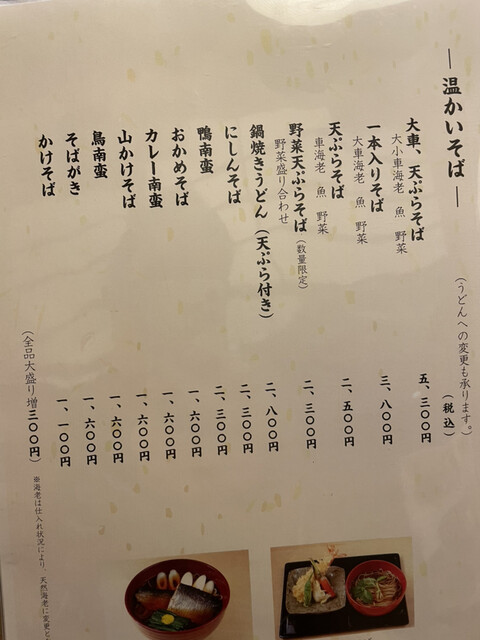 ― 温かいそば ―
(うどんへの変更も承ります。)
(税込)
大車、天ぷらそば 五、三〇〇円
大小車海老 魚 野菜
一本入りそば 三、八〇〇円
大車海老 魚 野菜
天ぷらそば 二、五〇〇円
車海老 魚 野菜
野菜天ぷらそば(数量限定) 二、三〇〇円
野菜盛り合わせ
鍋焼きうどん(天ぷら付き) 二、八〇〇円
にしんそば 二、三〇〇円
鴨南蛮 二、三〇〇円
おかめそば 一、六〇〇円
カレー南蛮 一、六〇〇円
山かけそば 一、六〇〇円
鳥南蛮 一、六〇〇円
そばがき 一、六〇〇円
かけそば 一、一〇〇円
(全品大盛り増三〇〇円)
※海老は仕入れ状況により、天然海老に変更と